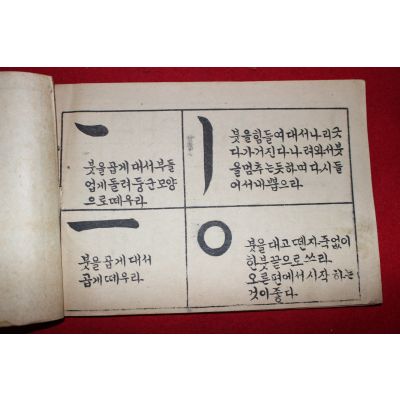 붓을 곱게 대서 부들
업게 돌려 둥군 모양
으로 떼우라.
붓을 힘들여 대서 나리긋
다가 거진 다 나려와서 붓
을 멈추는 듯하며 다시 들
어서 내뽑으라.
붓을 곱게 대서
곱게 떼우라.
붓을 대고 뗀 자죽 없이
한 붓끝으로 쓰라.
오른편에서 시작하는
것이 좋다.